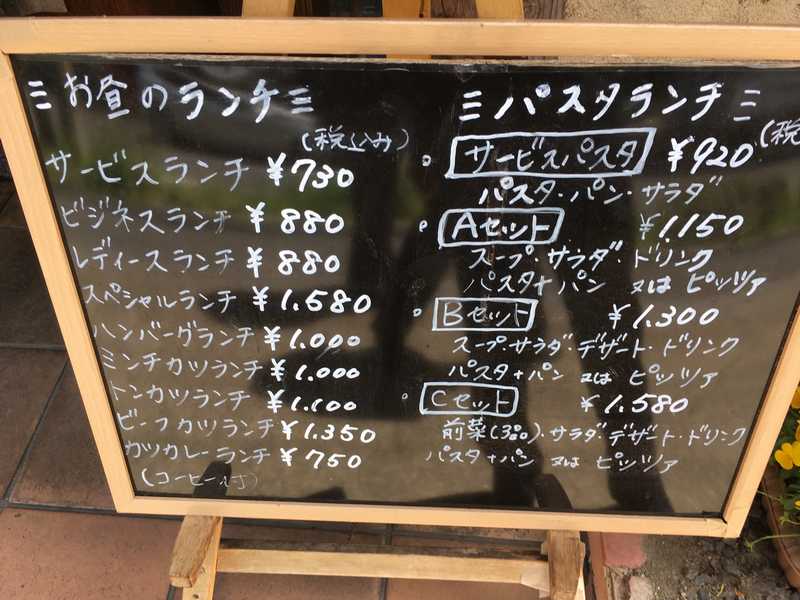 お昼のランチ
(税込み)
サービスランチ ¥730
ビジネスランチ ¥880
レディースランチ ¥880
スペシャルランチ ¥1.580
ハンバーグランチ ¥1.000
ミンチカツランチ ¥1.000
トンカツランチ ¥1.100
ビーフカツランチ ¥1.350
カツカレーランチ ¥750
(コーヒー付)
パスタランチ
(税
サービスパスタ ¥920
パスタ・パン・サラダ
Aセット ¥1.150
スープ・サラダ・ドリンク
パスタ+パン 又は ピッツァ
Bセット ¥1.300
スープ・サラダ・デザート・ドリンク
パスタ+パン 又は ピッツァ
Cセット ¥1.580
前菜(3品)・サラダ・デザート・ドリンク
パスタ+パン 又は ピッツァ